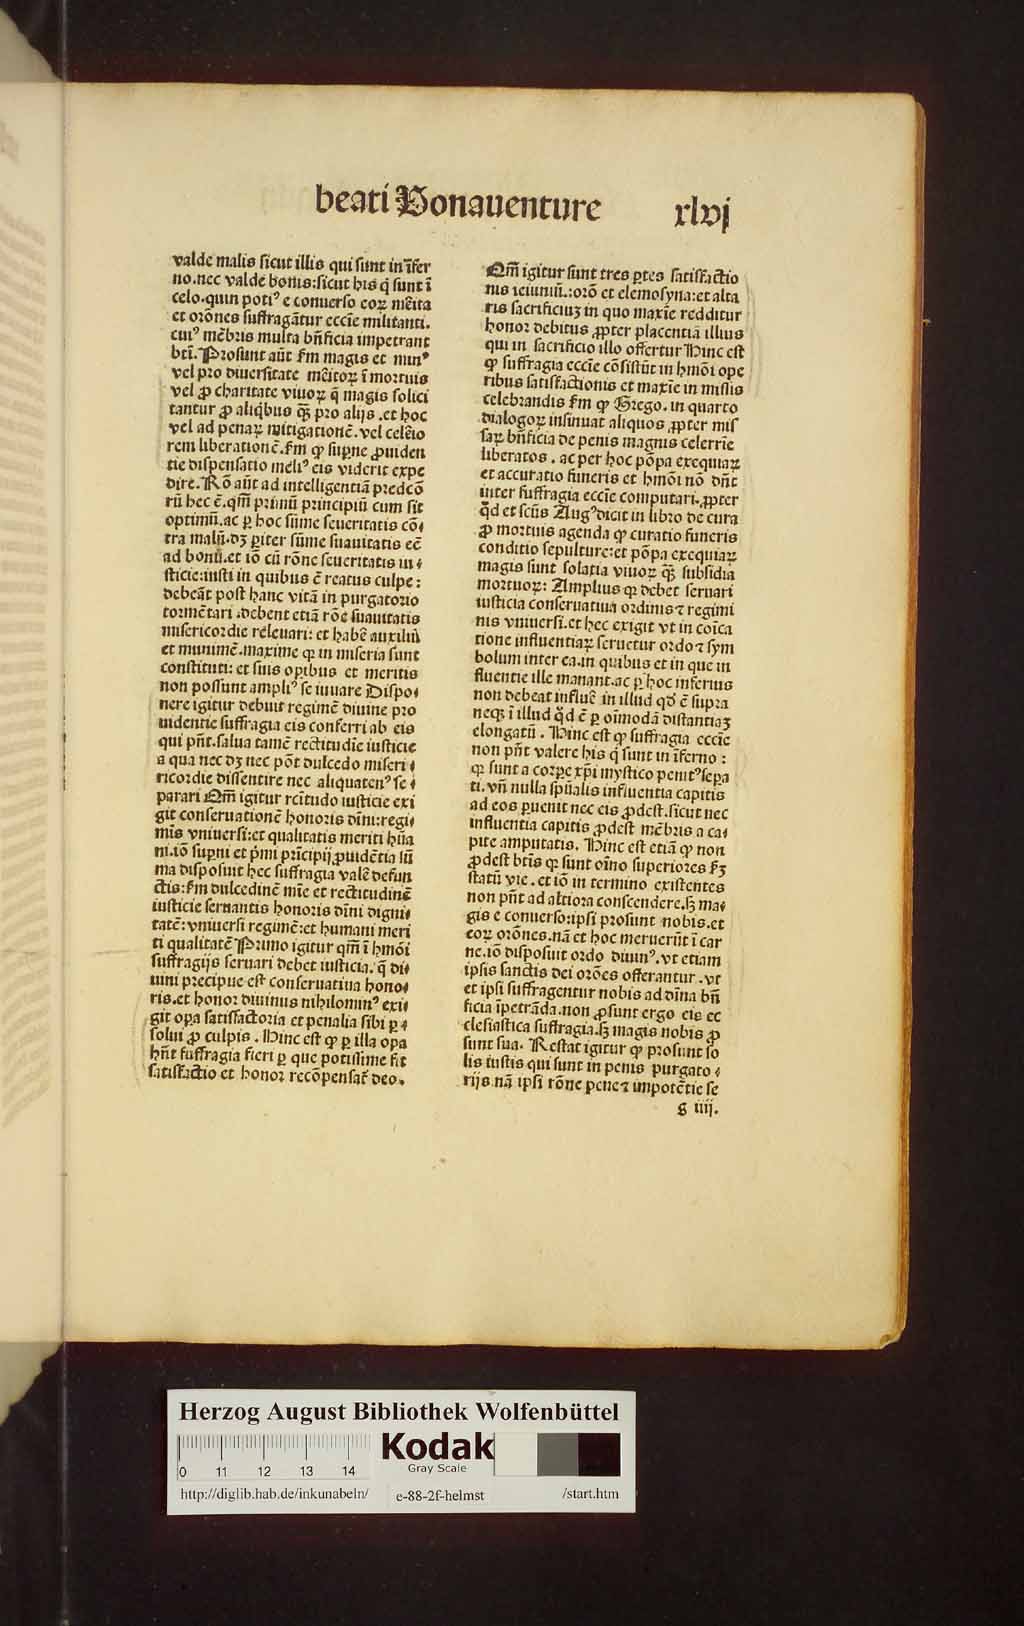 beati Bonauenture xlvj
valde malis sicut illis qui sunt in īfer
no.nec valde bonis:sicut his q̄ sunt ī
celo.quin potiꝰ e conuerso eoꝝ mēita
et orōnes suffragātur eccīe militanti.
cuiꝰ mēbris multa bn̄ficia impetrant
btī. Prosunt aūt ẜm magis et minꝰ
vel pro diuersitate mēitoꝝ ī mortuis
vel ꝓ charitate viuoꝝ q̄ magis solici
tantur ꝓ aliq̇bus qȝ̄ pro alijs .et hoc
vel ad penaꝝ mitigationē. vel celēio
rem liberationē.ẜm ꝙ suꝑne ꝓuiden
tie dispensatio meliꝰ eis viderit expe
dire. Rō aūt ad intelligentiā predcō
rū hec ē.qm̄ primū principiū cum sit
optimū.ac ꝑ hoc sūme seueritatis cō⸗
tra malū.dȝ ꝑiter sūme suauitatis eē
ad bonū.et iō cū rōne seueritatis iu⸗
sticie:iusti in quibus ē reatus culpe:
debeāt post hanc vitā in purgatorio
tormētari .debent etiā rōe suauitatis
misericordie releuari: et habē auxiliū
et munimē.maxime ꝙ in miseria sunt
constituti: et suis oꝑibus et meritis
non possunt ampliꝰ se iuuare Dispo⸗
nere igitur debuit regimē diuine pro
uidentie suffragia eis conferri ab eis
qui pn̄t.salua tamē rectitudīe iusticie
a qua nec dȝ nec pōt dulcedo miseri⸗
ricordie dissentire nec aliquatenꝰ se⸗
parari Qm̄ igitur rcītudo iusticie exi
git conseruationē honoris dīni:regi⸗
mīs vniuersi:et qualitatis meriti hūa
ni.iō suꝑni et pͥmi prīcipij ꝓuidētia sū
ma disposuit hec suffragia valē defun
ctis:ẜm dulcedinē mīe et rectitudinē
iusticie seruantis honoris dīni digni⸗
tatē: vniuersi regimē:et humani meri
ti qualitatē Primo igitur qm̄ ī hmōi
suffragijs seruari debet iusticia. q̄ di⸗
uini precipue est conseruatiua hono⸗
ris.et honor diuinus nihilominꝰ exi⸗
git oꝑa satisfactoria et penalia sibi ꝑ⸗
solui ꝓ culpis . Hinc est ꝙ ꝑ illa opa
hn̄t suffragia fieri ꝑ que potissime fit
satisfactio et honor recōpensat̄ deo.
Qm̄ igitur sunt tres ꝑtes satisfactio
nis ieiuniū.:orō et elemosyna:et alta
ris sacrificiuȝ in quo maxīe redditur
honor debitus ꝓpter placentiā illius
qui in sacrificio illo offertur Hinc est
ꝙ suffragia eccīe cōsistūt in hmōi ope
ribus satisfactionis et maxīe in missis
celebrandis ẜm ꝙ Grego. in quarto
dialogoꝝ insinuat aliquos ꝓpter mis
saꝝ bn̄ficia de penis magnis celerrīe
liberatos . ac per hoc pōpa exequiaꝝ
et accuratio funeris et hmōi nō dn̄t
inter suffragia eccīe computari.ꝓpter
qd̄ et scūs Augꝰ dicit in libro de cura
ꝓ mortuis agenda ꝙ curatio funeris
conditio sepulture:et pōpa exequiaꝝ
magis sunt solatia viuoꝝ qȝ̄ subsidia
mortuoꝝ: Amplius ꝙ debet seruari
iusticia conseruatiua ordinis⁊ regimi
nis vniuersi.et hec exigit vt in coīca
tione influentiaꝝ seruetur ordo⁊ sym
bolum inter ea.in quibus et in que in
fluentie ille manant.ac ꝑ hoc inferius
non debeat influē in illud qd̄ ē supra
neqȝ ī illud qd̄ ē ꝑ oīmodā distantiaȝ
elongatū . Hinc est ꝙ suffragia eccīe
non pn̄t valere his q̄ sunt in īferno :
ꝙ sunt a corꝑe xp̄i mystico penitꝰseꝑa
ti. vn̄ nulla spūalis influentia capitis
ad eos ꝑuenit nec eis ꝓdest.sicut nec
influentia capitis ꝓdest mēbris a ca⸗
pite amputatis. Hinc est etiā ꝙ non
ꝓdest btīs ꝙ sunt oīno superiores ẜȝ
statū vie . et iō in termino existentes
non pn̄t ad altiora conscendere.sȝ ma⸗
gis e conuerso:ipsi prosunt nobis.et
eoꝝ orōnes.nā et hoc meruerūt ī car
ne.iō disposuit ordo diuinꝰ. vt etiam
ipsis sanctis dei orōes offerantur .vt
et ipsi suffragentur nobis ad dīna bn̄
ficia īpetrāda.non ꝓsunt ergo eis ec
clesiastica suffragia.sȝ magis nobis ꝓ
sunt sua. Restat igitur ꝙ prosunt so
lis iustis qui sunt in penis purgato⸗
rijs nā ipsi rōne pene⁊ impotētie se
g iiij.
Herzog August Bibliothek Wolfenbüttel
Kodak
Gray Scale
0 11 12 13 14
http://diglib.hab.de/inkunabeln/ e-88-2f-helmst /start.htm